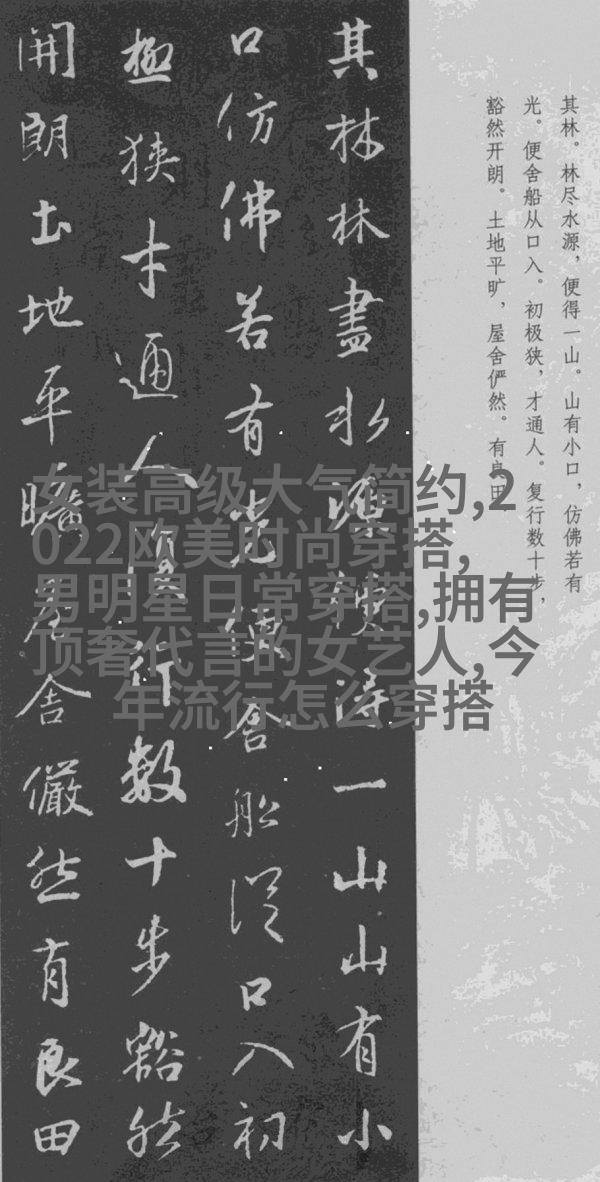 其林。林尽水源，便得一山。山有小口，仿佛若有
光。便舍船从口入。初极狭，才通人。复行数十步，
豁然开朗。土地平旷，屋舍俨然。有良田
其林林盡水源便得一山山有小
口仿佛若有光便舍船從口入初
極狭才通人復行数十步豁然
開朗土地平曠屋舍儼然有良田
女装高级大气简约,2
022欧美时尚穿搭,
男明星日常穿搭,拥有
顶奢代言的女艺人,今
年流行怎么穿搭